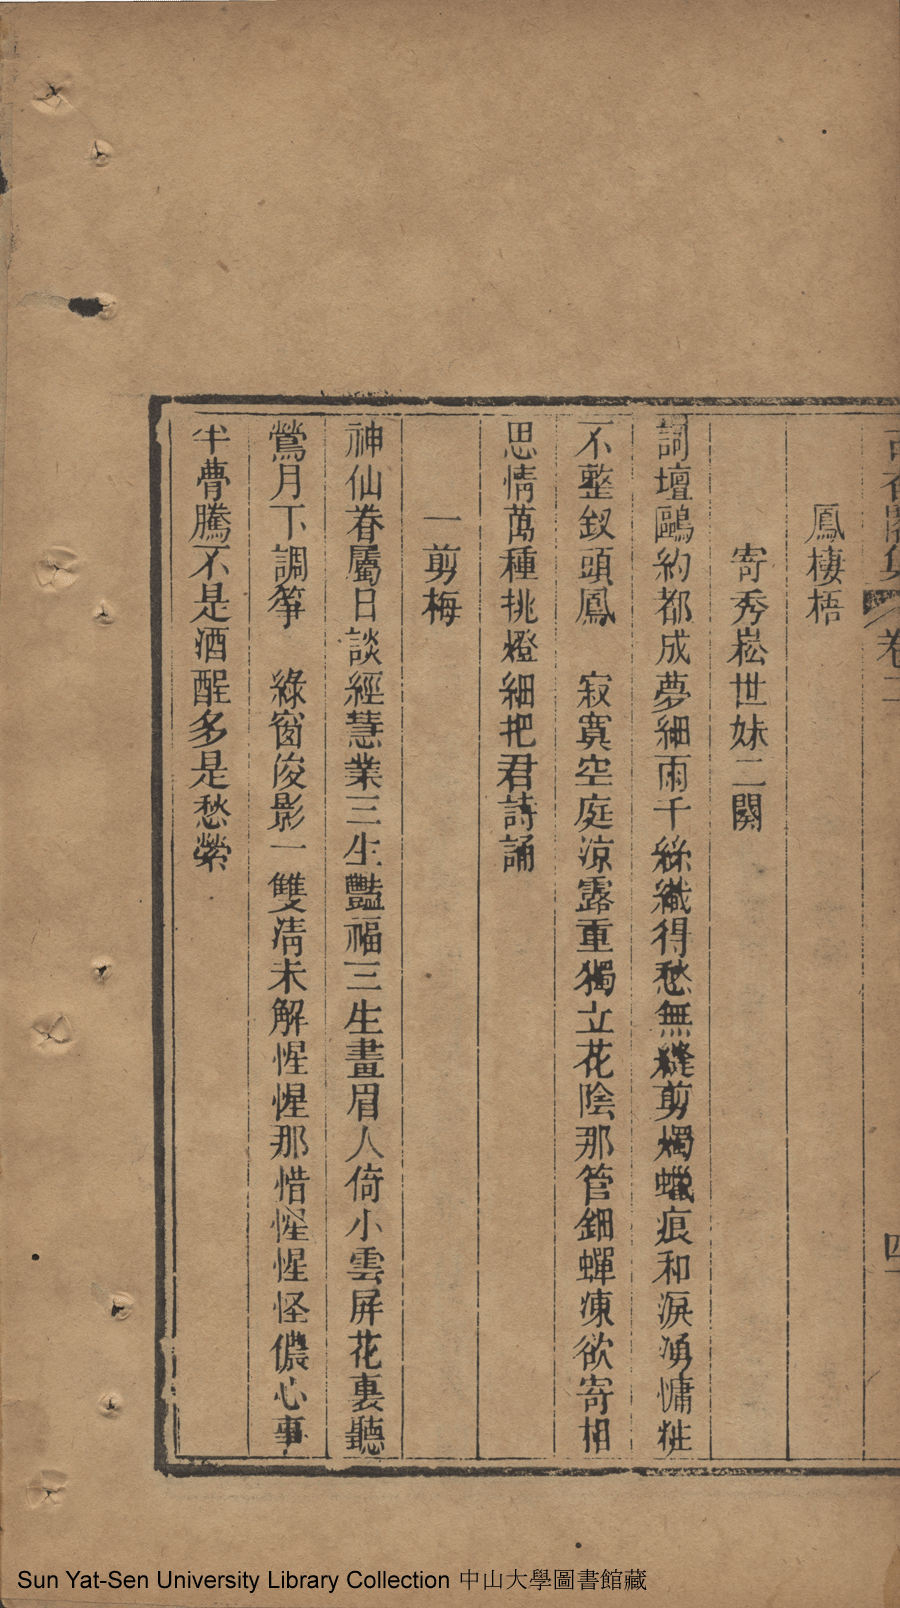 鳳棲梧
寄秀崧世妹二闋
詞壇鷗約都成夢細雨千絲織得愁無縫剪燭蠟痕和淚湧慵粧
不整釵頭鳳　寂寞空庭涼露重獨立花陰那管鈿蟬凍欲寄相
思情萬種挑燈細把君詩誦
一剪梅
神仙眷屬日談經慧業三生豔福三生畫眉人倚小雲屏花裏聽
鶯月下調箏　綠窗俊影一雙清未解惺惺那惜惺惺怪儂心事
半瞢騰不是酒酲多是愁縈
卷二
Sun Yat-Sen University Library Collection 中山大學圖書館藏